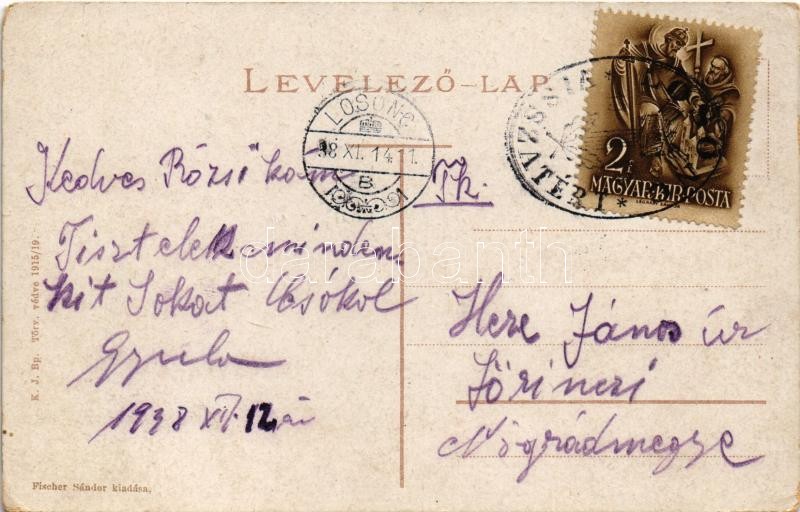 LEVELEZŐ-LAP
LOSONC
38 XI. 14
B
2f
MAGYAR·KIR·POSTA
Kedves Rózsi kám
Tisztelek minden
kit Sokat Csókol
Gyula
1938 XI. 12 én
Tk.
Here János úr
Lőrinczi
Nógrádmegye
K. J. Bp. Törv. védve 1915/19.
Fischer Sándor kiadása.
darabanth